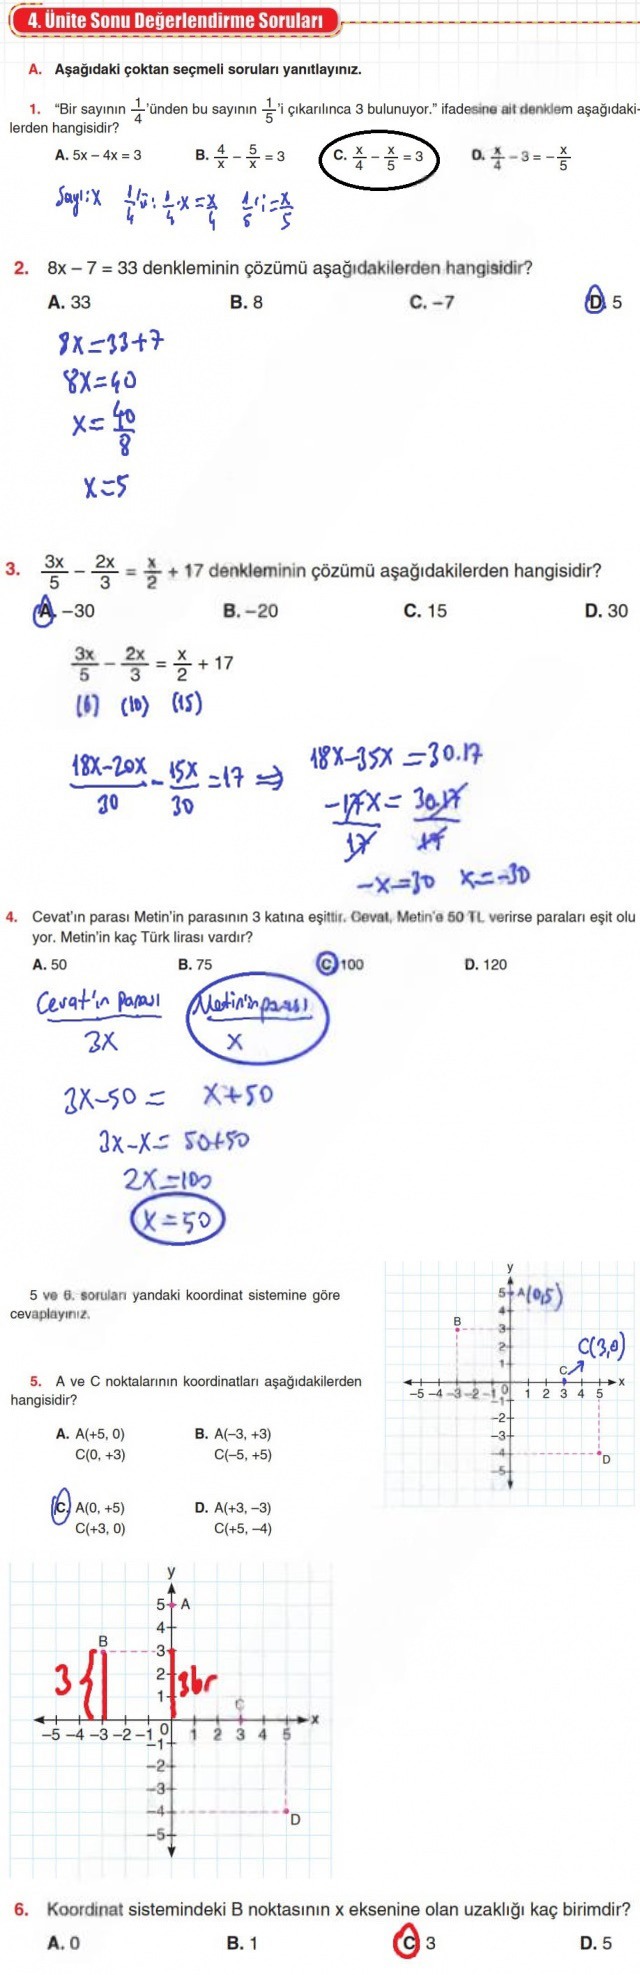 4. Ünite Sonu Değerlendirme Soruları
A. Aşağıdaki çoktan seçmeli soruları yanıtlayınız.
1. “Bir sayının 1/4'ünden bu sayının 1/5'i çıkarılınca 3 bulunuyor.” ifadesine ait denklem aşağıdaki-
lerden hangisidir?
A. 5x – 4x = 3 B. 4/x – 5/x = 3 C. x/4 – x/5 = 3 D. x/4 – 3 = – x/5
Sayı:x 1/4'ü: 1/4 . x = x/4 1/5'i = x/5
2. 8x – 7 = 33 denkleminin çözümü aşağıdakilerden hangisidir?
A. 33 B. 8 C. –7 D. 5
8x=33+7
8x=40
x= 40/8
x=5
3. 3x/5 – 2x/3 = x/2 + 17 denkleminin çözümü aşağıdakilerden hangisidir?
A. –30 B. –20 C. 15 D. 30
3x/5 – 2x/3 = x/2 + 17
(6) (10) (15)
18x-20x/30 - 15x/30 = 17 ⇒ 18x-35x = 30.17
-17x/17 = 30.17/17
-x=30 x=-30
4. Cevat'ın parası Metin'in parasının 3 katına eşittir. Cevat, Metin'e 50 TL verirse paraları eşit olu
yor. Metin'in kaç Türk lirası vardır?
A. 50 B. 75 C. 100 D. 120
Cevat'ın parası Metin'in parası
3x x
3x-50 = x+50
3x-x= 50+50
2x=100
x=50
5 ve 6. soruları yandaki koordinat sistemine göre
cevaplayınız.
5. A ve C noktalarının koordinatları aşağıdakilerden
hangisidir?
A. A(+5, 0) B. A(–3, +3)
C(0, +3) C(–5, +5)
C. A(0, +5) D. A(+3, –3)
C(+3, 0) C(+5, –4)
y
5 A(0,5)
4
B 3
2 C(3,0)
1 C
–5 –4 –3 –2 –1 0 1 2 3 4 5 x
–1
–2
–3
–4
D
–5
y
5 A
4
B 3
3 2 3br
1 C
–5 –4 –3 –2 –1 0 1 2 3 4 5 x
–1
–2
–3
–4
D
–5
6. Koordinat sistemindeki B noktasının x eksenine olan uzaklığı kaç birimdir?
A. 0 B. 1 C 3 D. 5